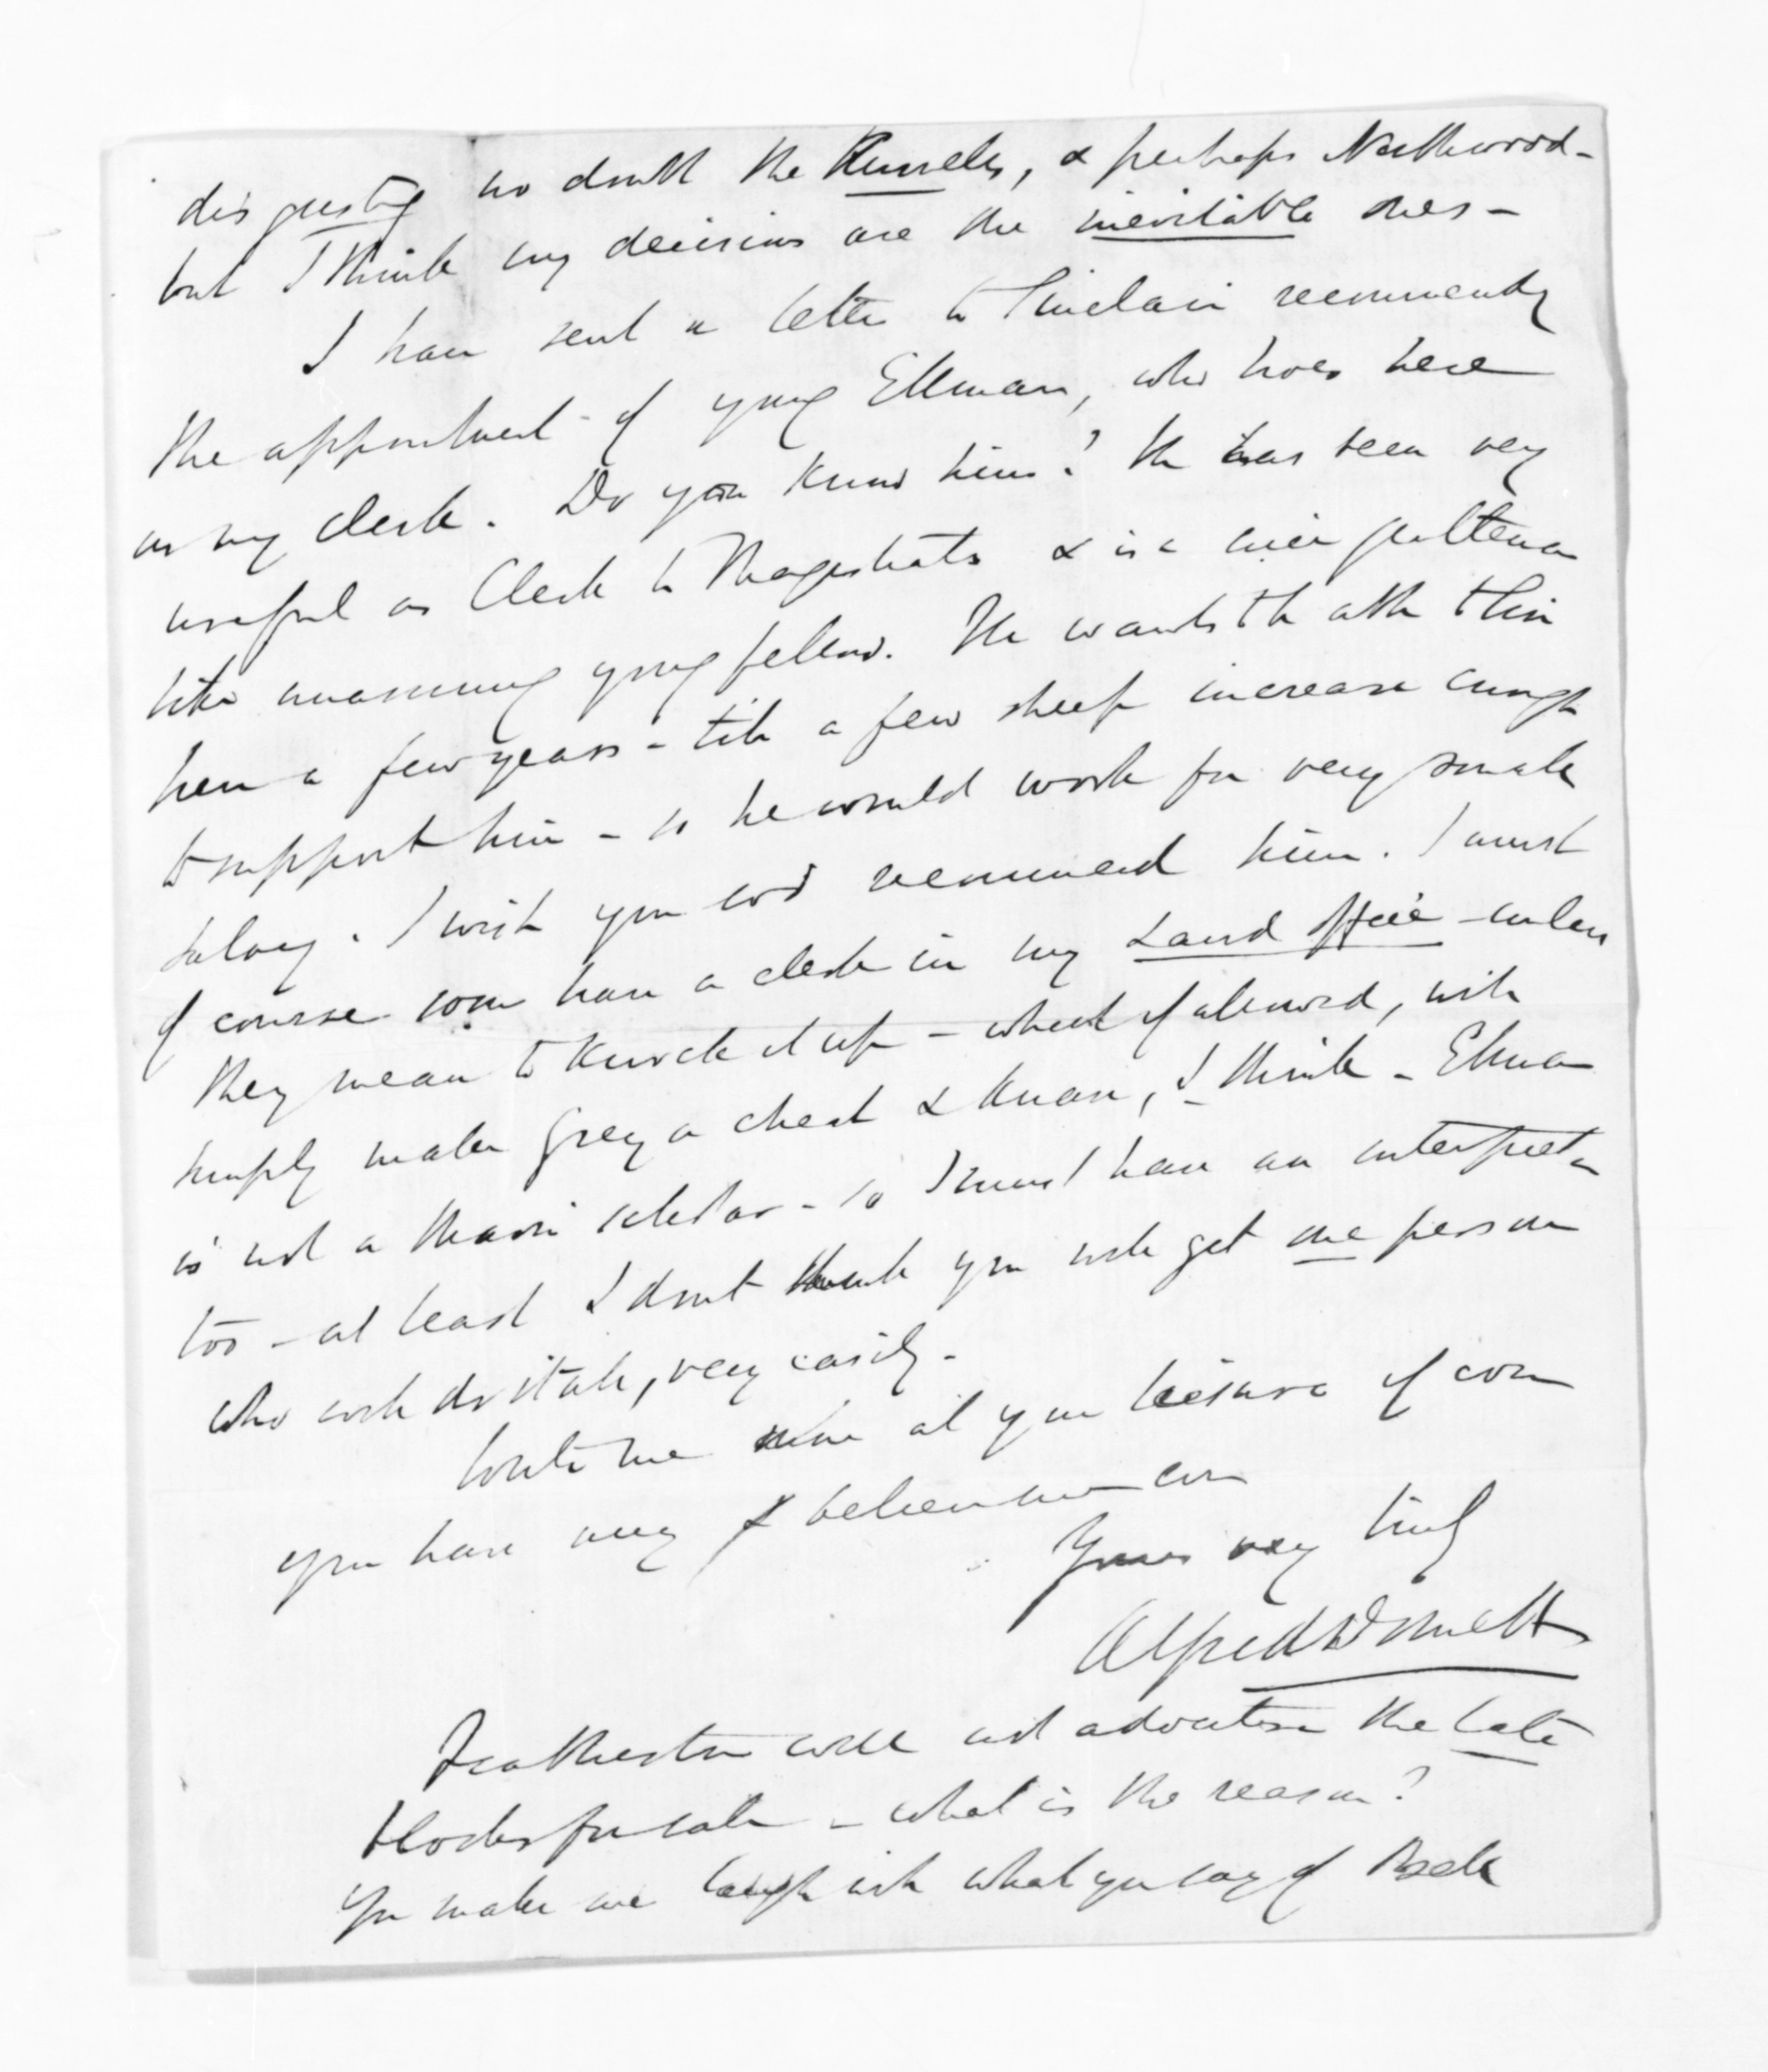 disgusting no doubt the Russells, & perhaps Northwood -
but I think my decisions are the inevitable ones -
I have sent a letter to Sinclair recommendg
the appointment of young Ellman, who lives here
as my clerk. Do you know him? He has been very
useful as Clerk to Magistrates & is a nice gentleman
like unassuming young fellow. He wants to attle this
here a few years - till a few sheep increase enough
to support him - so he would work for very small
salary. I wish you cod recommend him. I must
of course have a clerk in my Land Office - unless
they mean to knock it up - which if allowed, will
simply make Grey a cheat & knave, I think - Ellman
is not a Maori scholar - so I must have an interpreter
too - at least I dont think you will get one person
who will do it all, very easily.
Write me at your leisure if ever
you have any & believe me ever
Yours very truly
Alfred Domett
Featherston will not advertise the late
blocks for sale - what is the reason?
You make me laugh with what you say of Bell